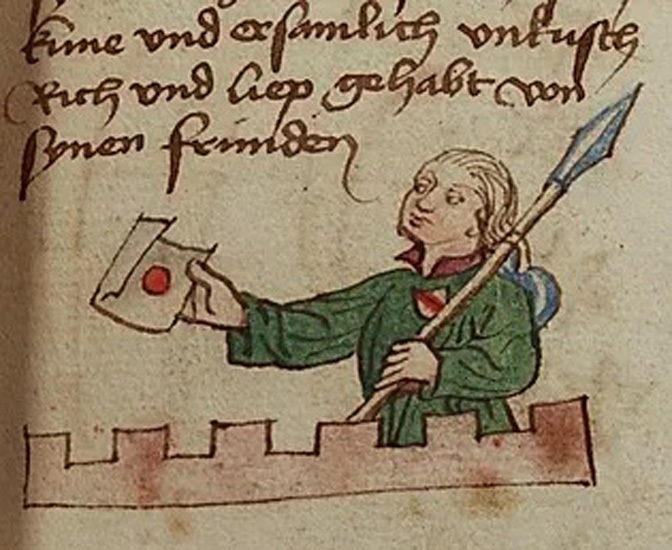 küne und ersamlich unkusch
Rich und liep gehabt von
synen frunden